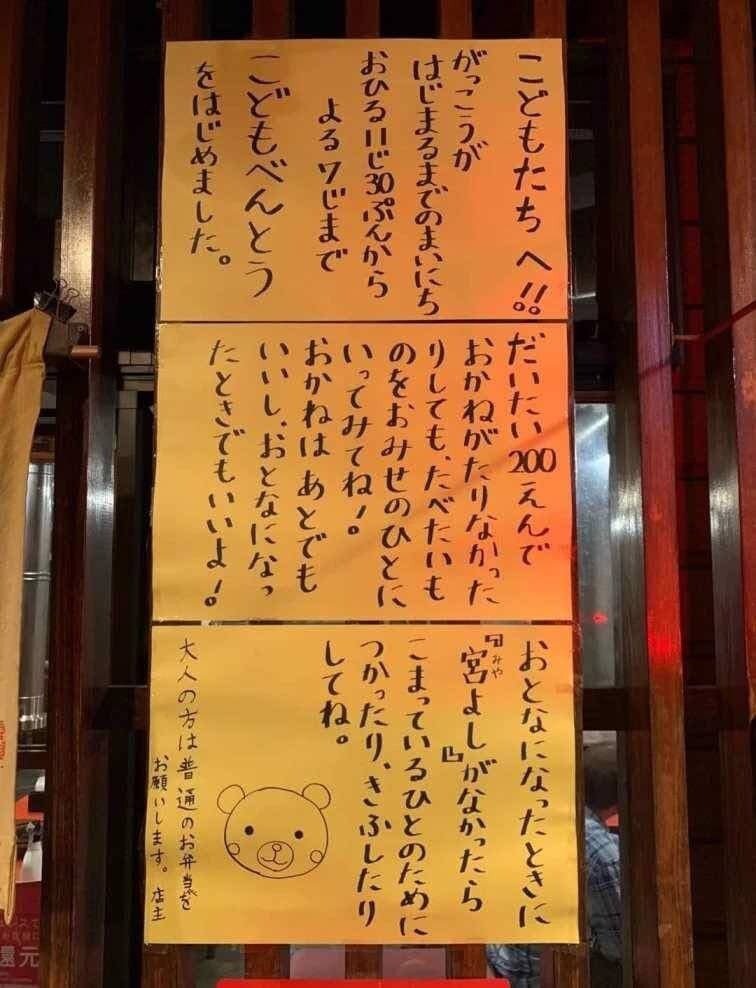 こどもたちへ!!
がっこうが
はじまるまでのまいにち
おひる11じ30ぷんから
よる7じまで
こどもべんとう
をはじめました。
だいたい200えんで
おかねがたりなかった
りしても、たべたいも
のをおみせのひとに
いってみてね!。
おかねは あとでも
いいし、おとなになっ
たときでもいいよ!
おとなになったときに
『宮よし』がなかったら
みや
こまっているひとのために
つかったり、きふしたり
してね。
大人の方は普通のお弁当を
お願いします。店主
還元